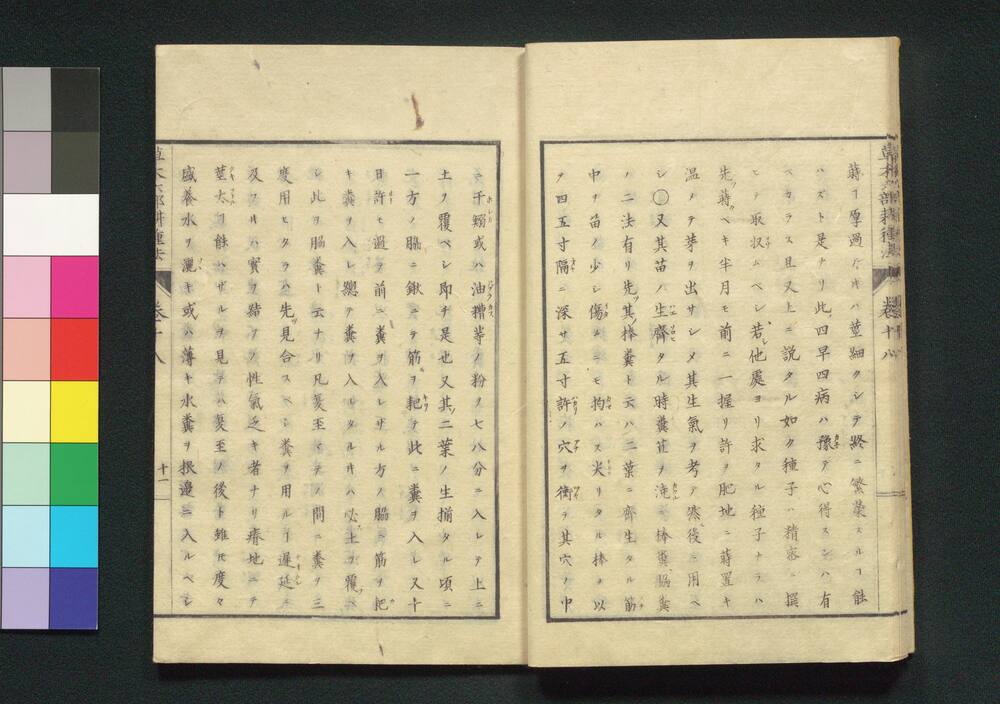 草木六部耕種法 卷十八
蒔ヿ厚過ルキハ莖細クシテ終ニ繁榮スルヿ能
ハズト是ナリ此四早四病ハ豫テ心得スンハ有
ベカラス且又上ニ説タル如ク種子ハ精密ニ撰
ヒテ取収ムベシ若他處ヨリ求タル種子ナラハ
先蒔ベキ半月モ前ニ一握リ許ヲ肥地ニ蒔置キ
温メテ芽ヲ出サシメ其生氣ヲ考テ然後ニ用ベ
シ○又其苗ノ生齊タル時糞苴ヲ淹ニ棒糞脇糞
ノ二法有リ先其棒糞ト云ハ二葉ニ齊生タル筋
中ヲ苗ノ少シ傷ムニモ拘ハス尖リタル棒ヲ以
テ四五寸隔ニ深サ五寸許ノ穴ヲ衝テ其穴ノ中
ニ干鰯或ハ油糟等ノ粉ノ七八分ニ入レテ上ニ
土ヲ覆ベシ即チ是也又其二葉ノ生揃タル頃ニ
一方ノ脇ニ鍬ニテ筋ヲ耙テ此ニ糞ヲ入レ又十
日許モ過テ前ニ糞ヲ入レザル方ノ脇ニ筋ヲ把
キ糞ヲ入レ總テ糞ヲ入レタルキハ必土ヲ覆ベ
シ此ヲ脇糞ト云ナリ凡夏至マテノ間ニ糞ヲ三
度用ヒタラハ先見合スベシ糞ヲ用ルヿ遲延ニ
及フキハ實ヲ結フノ性氣乏キ者ナリ瘠地ニテ
莖太ヿ餘ハザルヲ見テハ夏至ノ後ト雖𪜈度々
盛養水ヲ灑キ或ハ薄キ水糞ヲ根邊ニ入ルベシ
草木六部耕種法 卷十八 十一